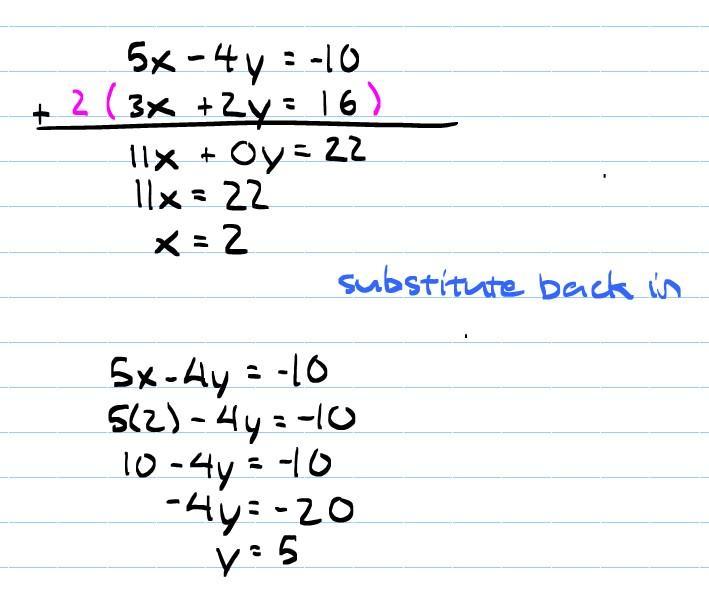 5x - 4y = -10
+ 2 ( 3x + 2y = 16 )
11x + 0y = 22
11x = 22
x = 2
substitute back in
5x - 4y = -10
5(2) - 4y = -10
10 - 4y = -10
-4y = -20
y = 5